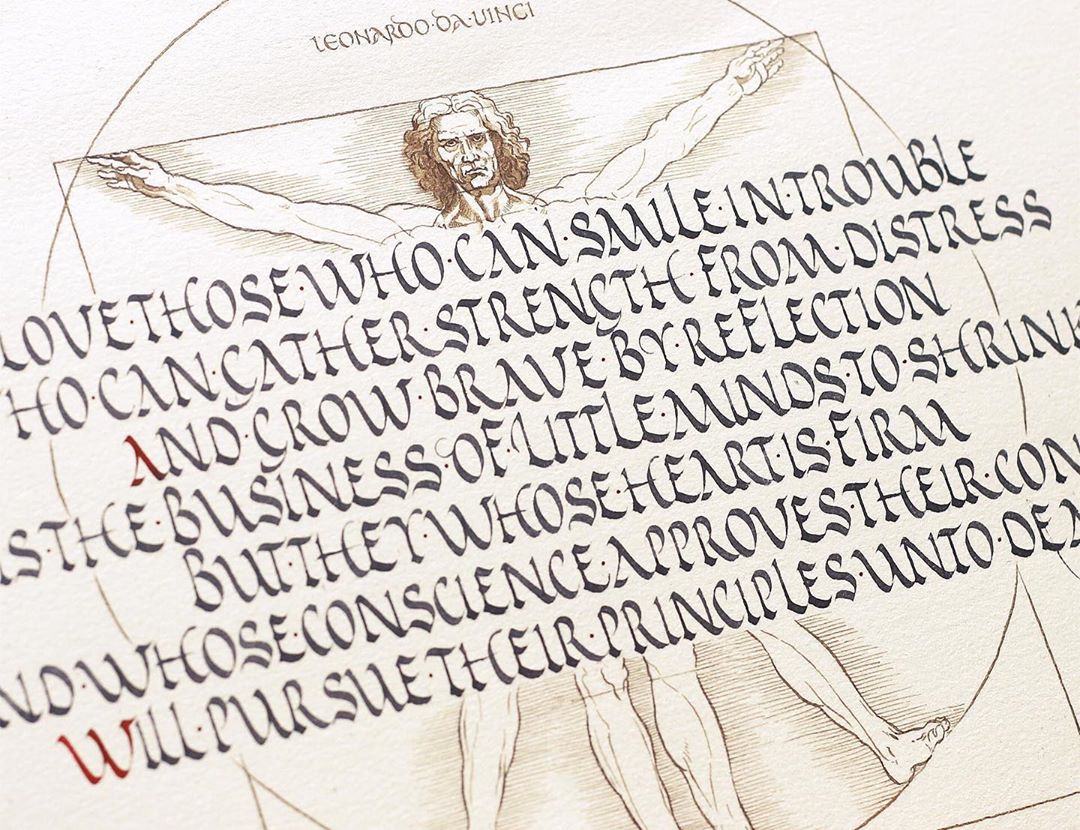 LEONARDO·DA·VINCI
LOVE·THOSE·WHO·CAN·SMILE·IN·TROUBLE
HO·CAN·GATHER·STRENGTH·FROM·DISTRESS
AND·GROW·BRAVE·BY·REFLECTION
IS·THE·BUSINESS·OF·LITTLE·MINDS·TO·SHRINK
BUT·THEY·WHOSE·HEART·IS·FIRM
ND·WHOSE·CONSCIENCE·APPROVES·THEIR·CON
WILL·PURSUE·THEIR·PRINCIPLES·UNTO·DEA